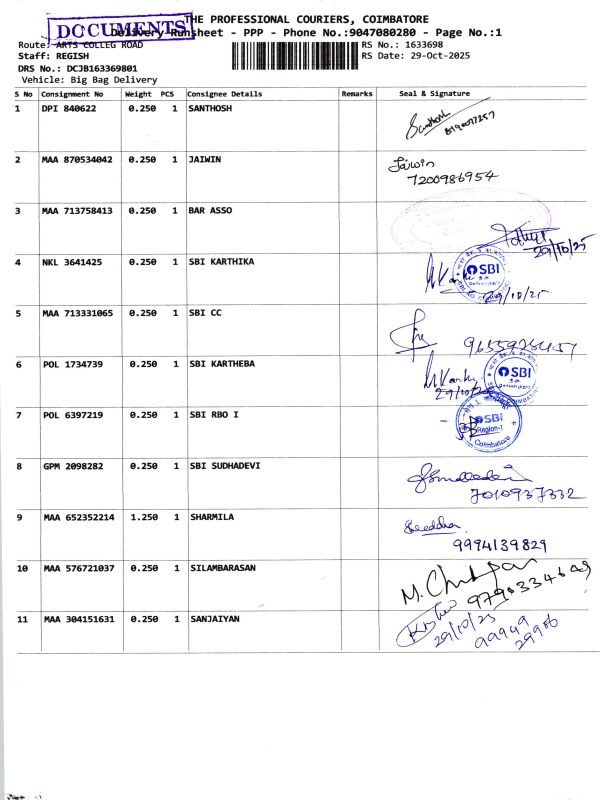 DOCUMENTS
THE PROFESSIONAL COURIERS, COIMBATORE
Delivery Runsheet - PPP - Phone No.:9047080280 - Page No.:1
Route: ARTS COLLEG ROAD
RS No.: 1633698
Staff: REGISH
RS Date: 29-Oct-2025
DRS No.: DCJB163369801
Vehicle: Big Bag Delivery
S No Consignment No Weight PCS Consignee Details Remarks Seal & Signature
1 DPI 840622 0.250 1 SANTHOSH Santhosh
2 MAA 870534042 0.250 1 JAIWIN Jaiwin
7200986954
3 MAA 713758413 0.250 1 BAR ASSO
29/10/25
4 NKL 3641425 0.250 1 SBI KARTHIKA SBI
29/10/25
5 MAA 713331065 0.250 1 SBI CC
6 POL 1734739 0.250 1 SBI KARTHEBA SBI
29/10/25
7 POL 6397219 0.250 1 SBI RBO I SBI
Region-1
Coimbatore
8 GPM 2098282 0.250 1 SBI SUDHADEVI
7010937332
9 MAA 652352214 1.250 1 SHARMILA
9994139829
10 MAA 576721037 0.250 1 SILAMBARASAN
11 MAA 304151631 0.250 1 SANJAIYAN
29/10/25
99949
29906